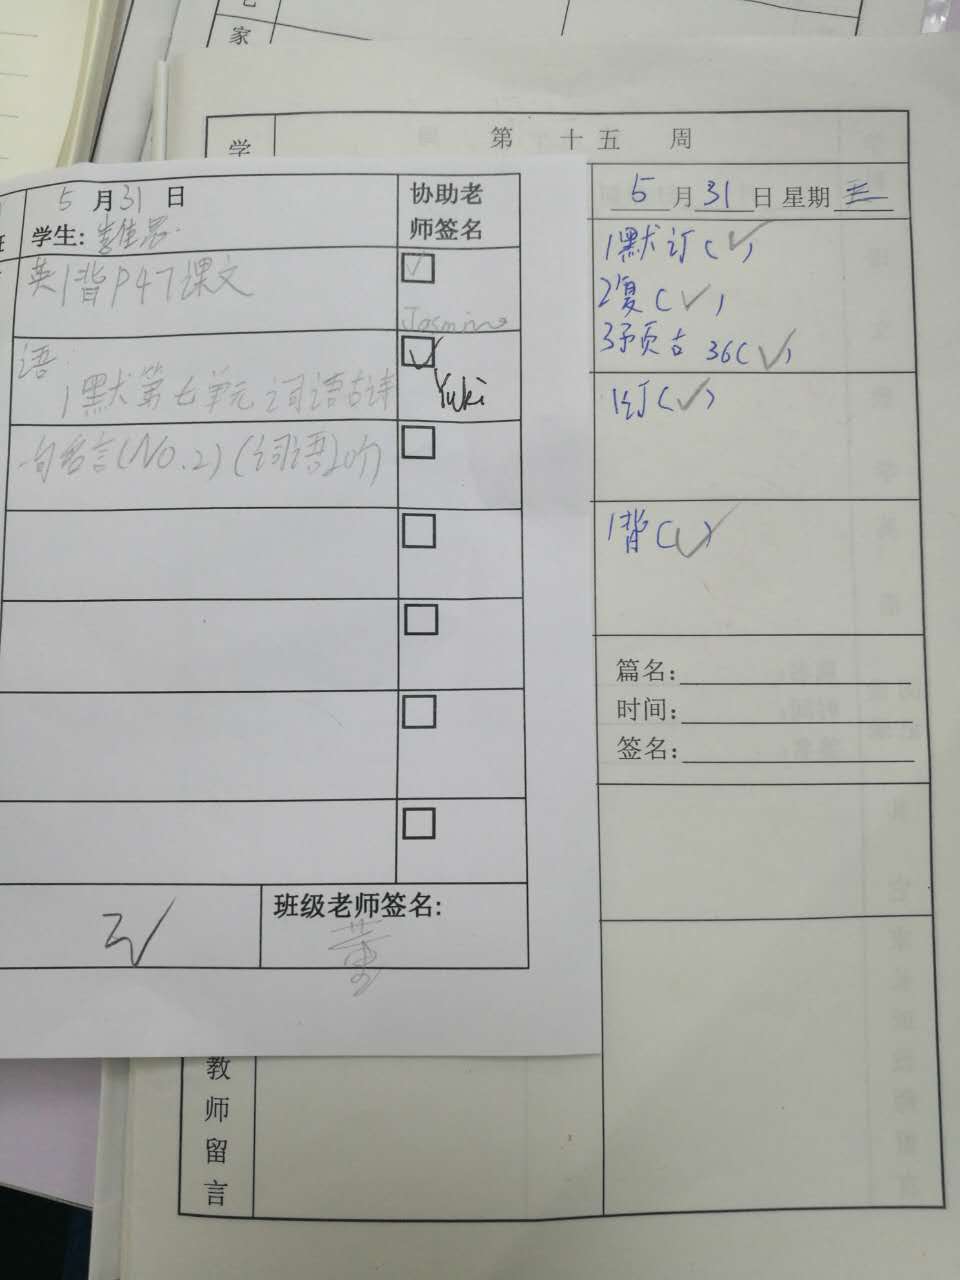 家
学
第 十五 周
5月31日
学生:
协助老
师签名
英1背P47课文
Jasmine
语
1默第七单元词语古诗
Yuki
句名言(No.2)(词语20个
班级老师签名:
董
5月31日 星期三
1默订(✓)
2复(✓)
3预古36(✓)
1订(✓)
1背(✓)
篇名:
时间:
签名:
教
师
留
言